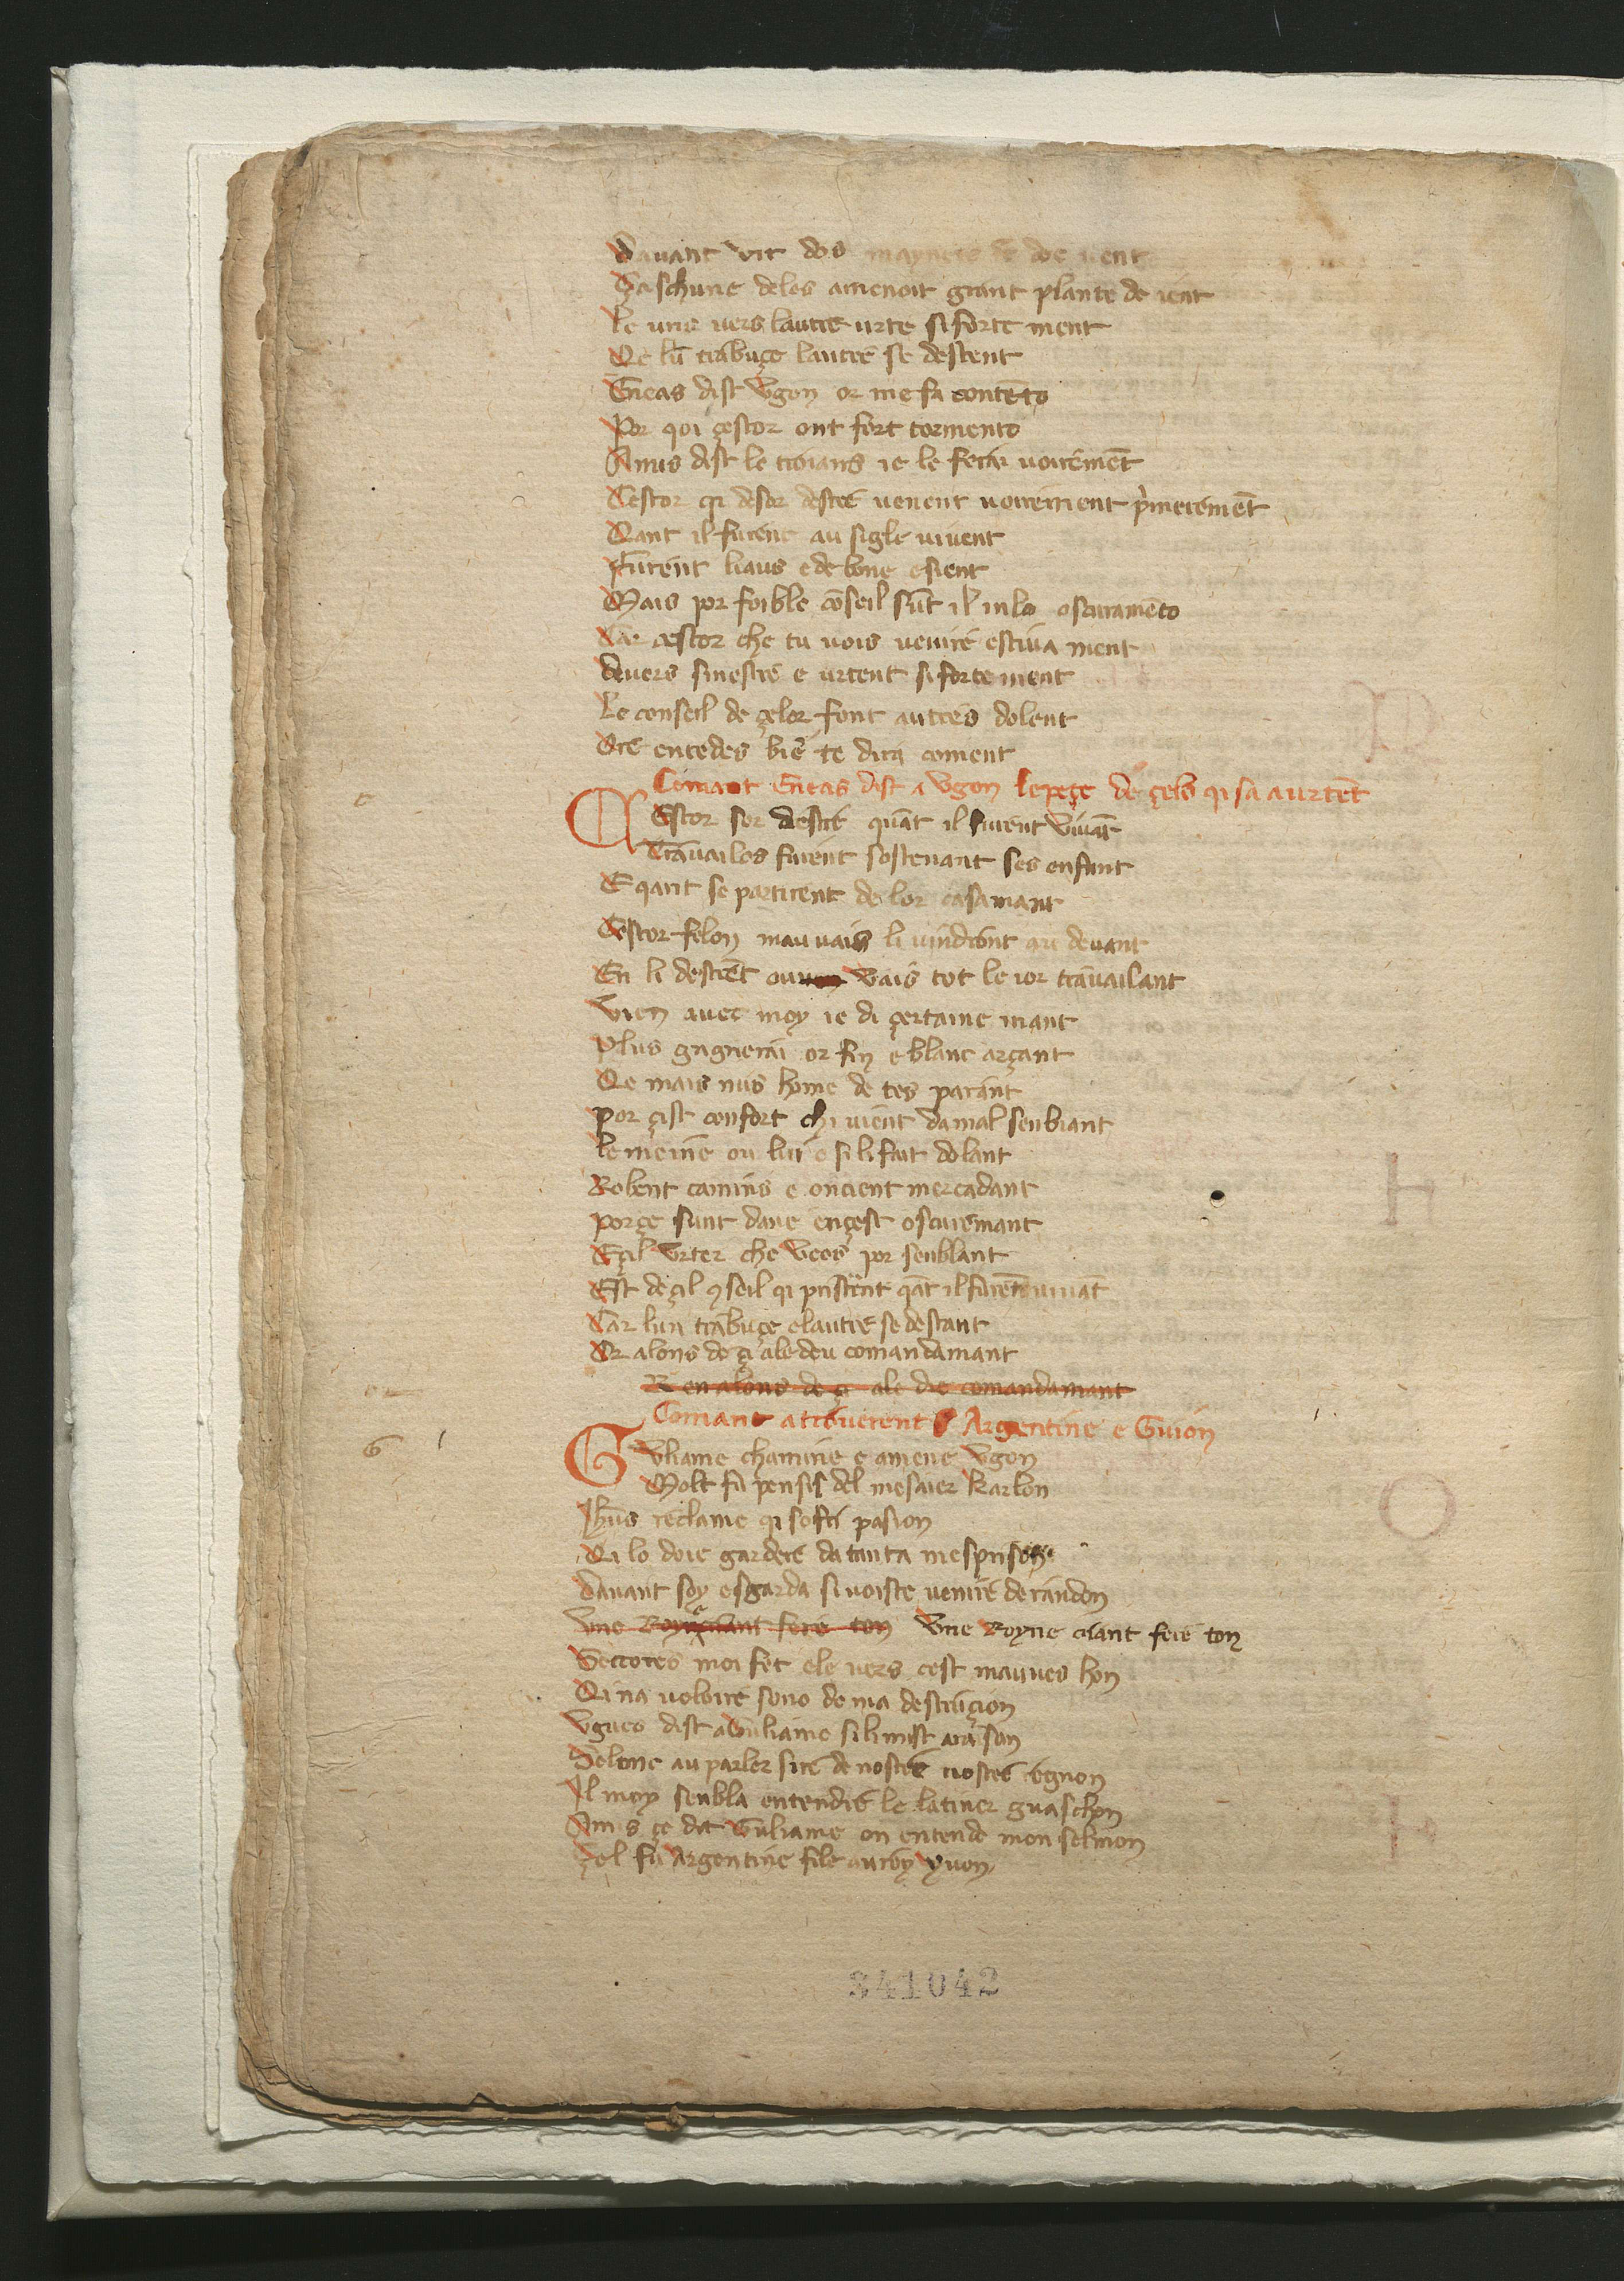 Dauant vit dos mayneres de ient
Çaschune deles amenoit grant plante de ient
Le uns uers lautre urte si forte ment
Qe lu̅ trabuçe lautre se destent
Eneas dist Vgon or me fa conte̅to
Por qoi çestor ont fort tormento
Amis dist le troians ie le ferai uoiremẽt
Cestor qi desor destre uenent uoirement p̍meremẽt
Qant il furent au sigle uiuent
Furent liaus e de bone esient
Mais por foible co̅seil su̅t il in lo oscuramẽto
Car cestor che tu uois uenire estiua ment
deuers sinestre e urtent si forte ment
Le conseil de çelor font autres dolent
Ore entedes bie̅ te dira coment
Comant Eneas dist a Vgon le peçe de çels qi sa aurtẽt
C
Estor sor destre qua̅t il furent viua̅t
Trauailes furent sostenant ses enfant
E qant se partirent de lor casamant
Cestor felon mauuais li uindront au deuant
En li destre̅t ou vais tot le ior trauailant
Vien auec moy ie di çertaine mant
Plus gagnerai or fin e blanc arçant
Qe mais nus home de tes parant
Por çist confort chi uient da mal senblant
Le meine̅ ou lui e si li fait dolant
Robent camins e oncient mercadant
Por çe sunt dane en çest oscuremant
E çil vrter che veos por senblant
Est de çil ꝯseil qi pristrent qa̅t il fure̅t uiua̅t
Car lun trabuçe e lautre se destant
Or alons de çi ale deu comandamant
R en alons de çi ale die comandamant
Comant atrouerent Argentine e Guion
G
Vliame chamine e amene Vgon
Molt fu pensis del mesaier Karlon
Jhus reclame qi sofri pasion
Qi lo doie gardere da tanta mesprison
Dauant soy esgarda si uoiste uenire de randon
Vne Royne Vne Royne criant fere ton
Secores moi fet ele uers cest mauues hon
Qi na uoloire sono de ma destruçion
Vguco dist a Vuliame si li mist araison
Selonc au parler sire de nostre
Il moy senbla entendre le latiner guaschon
Amis çe dit Vuliame on entende mon selmon
Çel fu Argentine file au roy yuon
c
G
341042